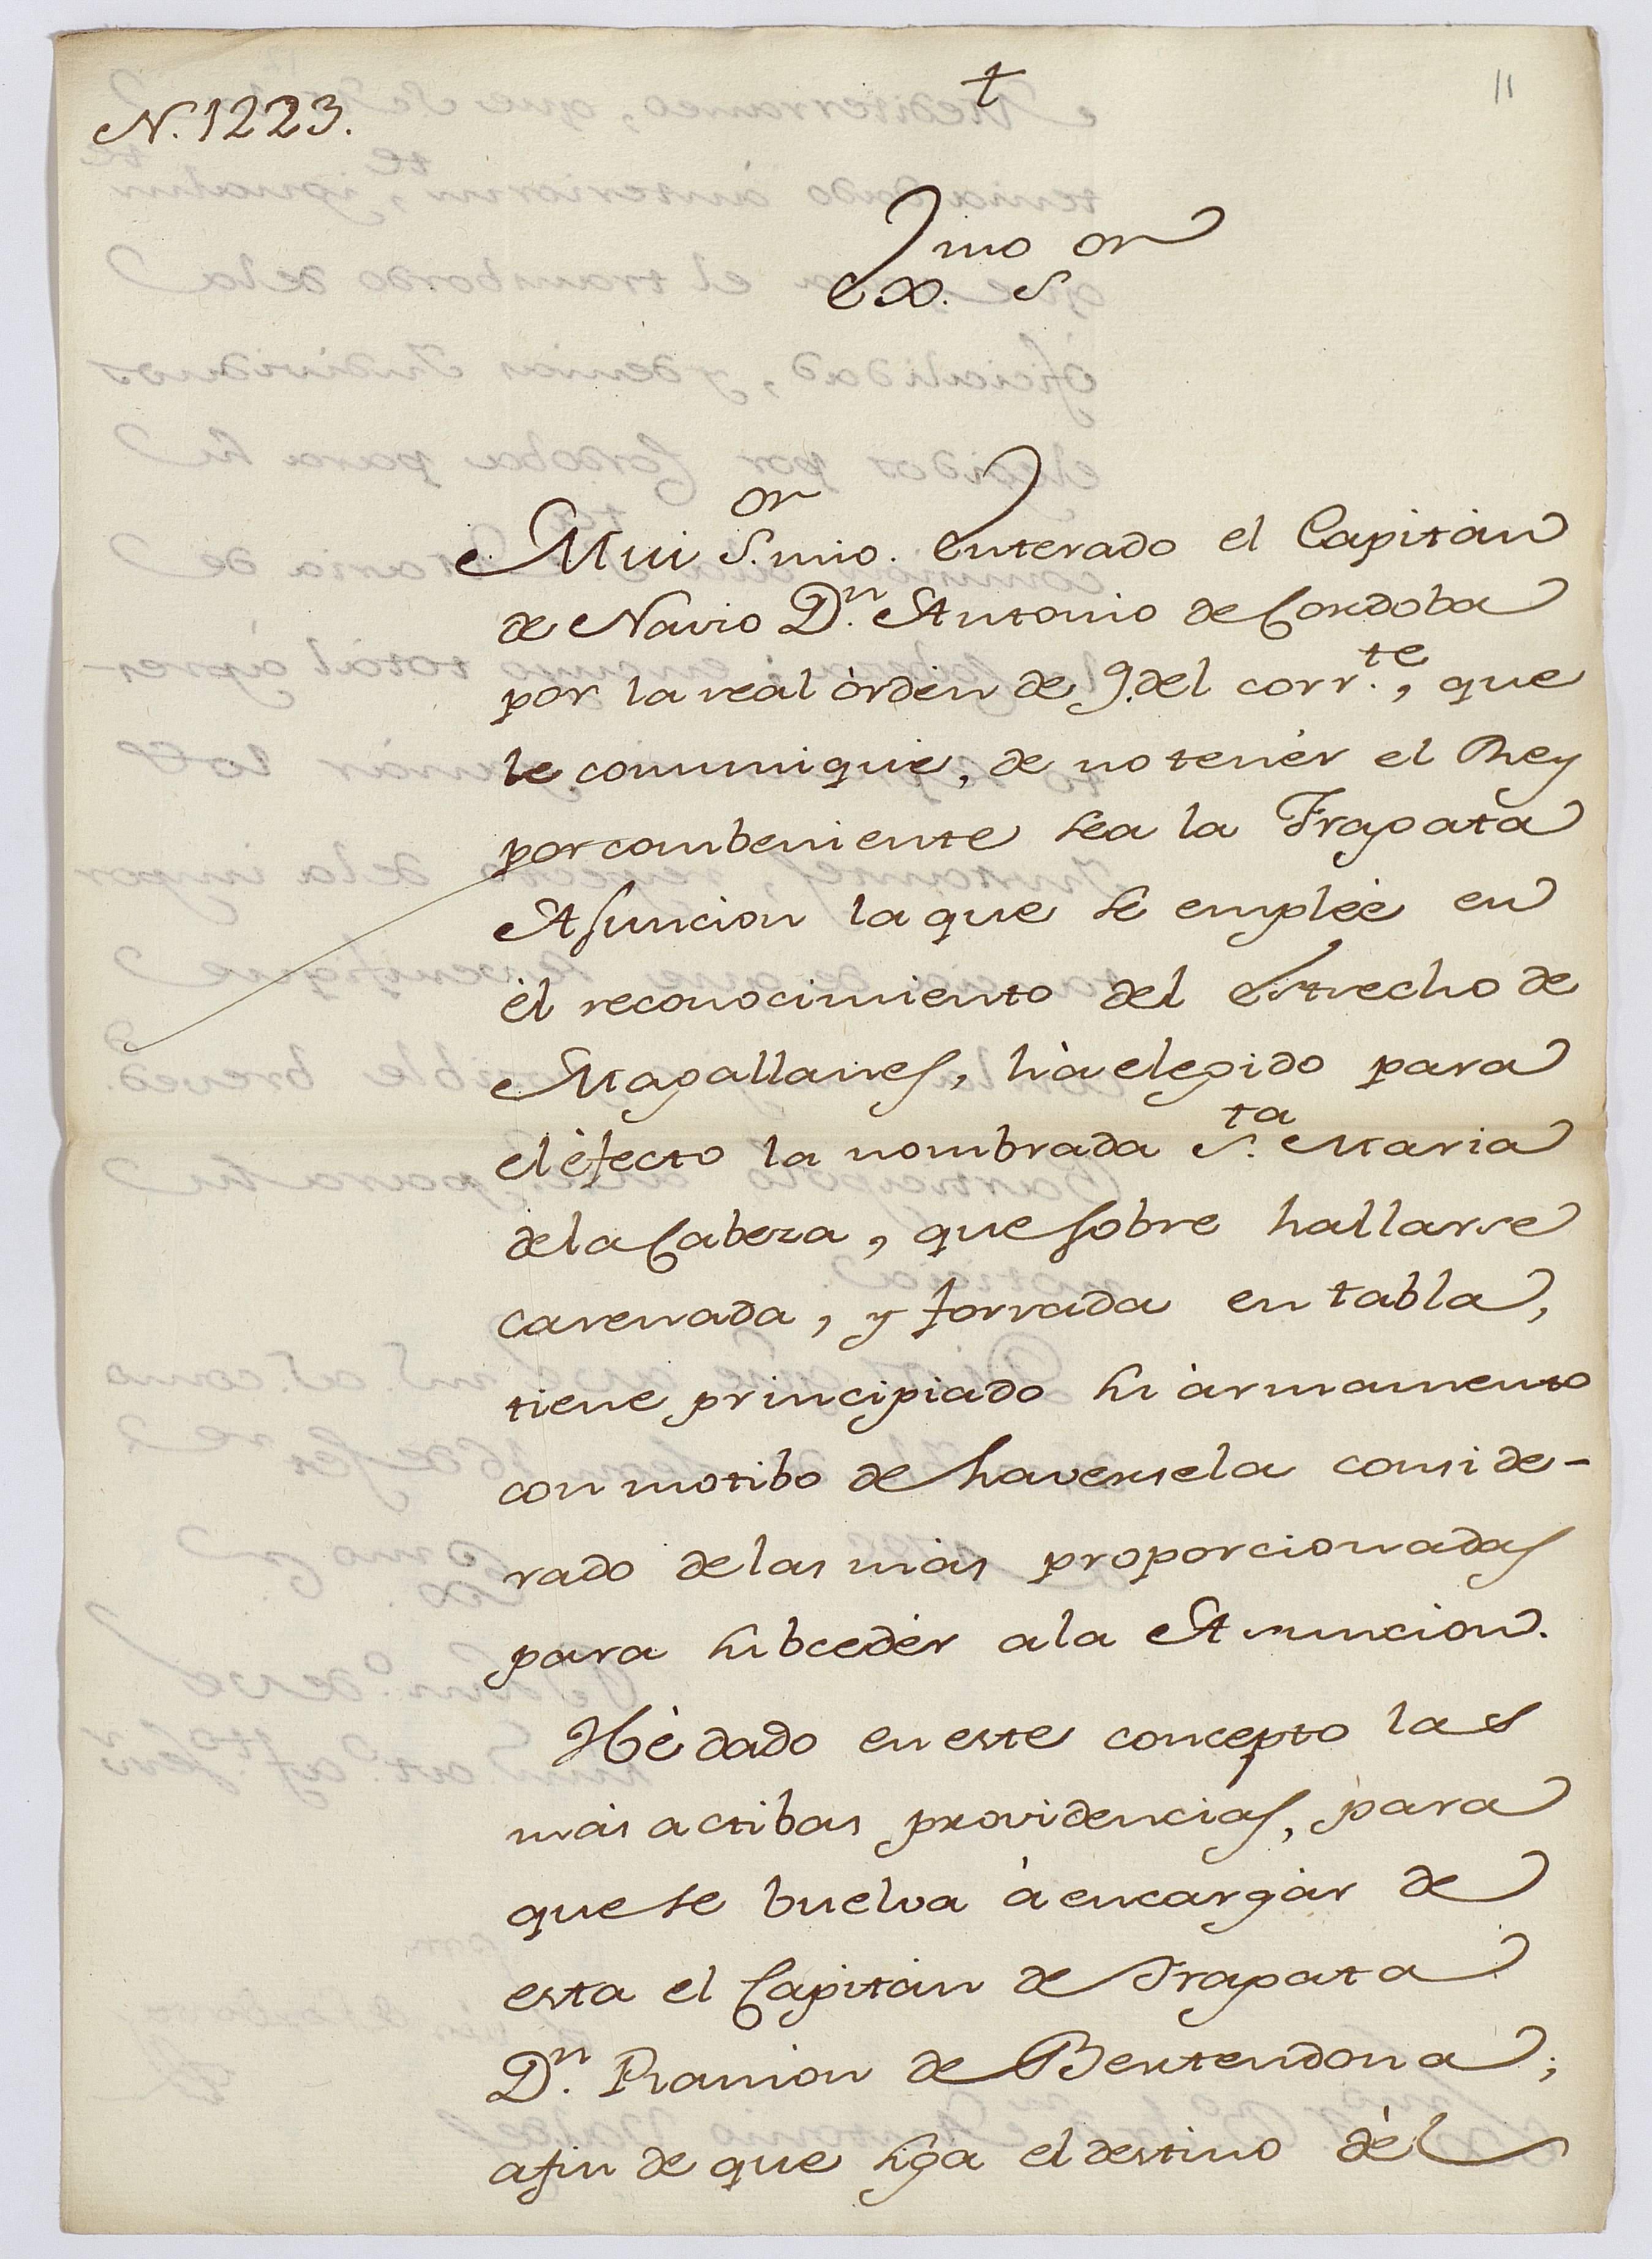 N. 1223.
†
11
Exmo. Sor
Mui Sor. mio. Enterado el Capitàn
de Navio Dn. Antonio de Cordoba
por la real òrden de 9. del corrte., que
le comuniquè, de no tenèr el Rey
por combeniente sea la Fragata
Asuncion la que se emplèe en
èl reconocimiento del estrecho de
Magallanes, hà elegido para
el èfecto la nombrada Sta. Maria
de la Cabeza, que sobre hallarse
carenada, y forrada en tabla,
tiene principiado su àrmamento
con motibo de haversela conside-
rado de las màs proporcionadas
para subcedèr a la Asuncion.
Hè dado en este concepto las
màs actibas providencias, para
que se buelva à encargàr de
esta el Capitàn de Fragata
Dn. Ramon de Bertendona;
afin de que siga el destino dèl